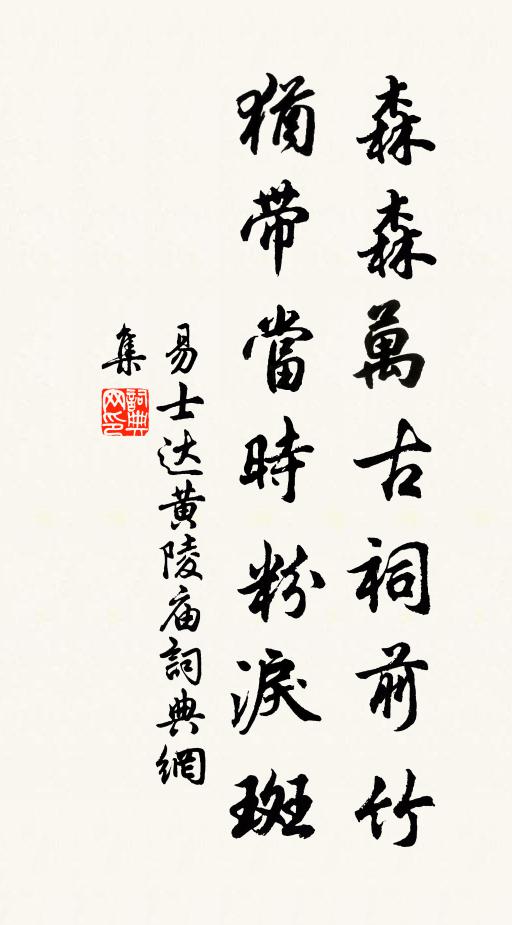 森森萬古祠前竹
猶帶當時粉淚斑
易士达黄陵庙詞典網
集
詞典
网印